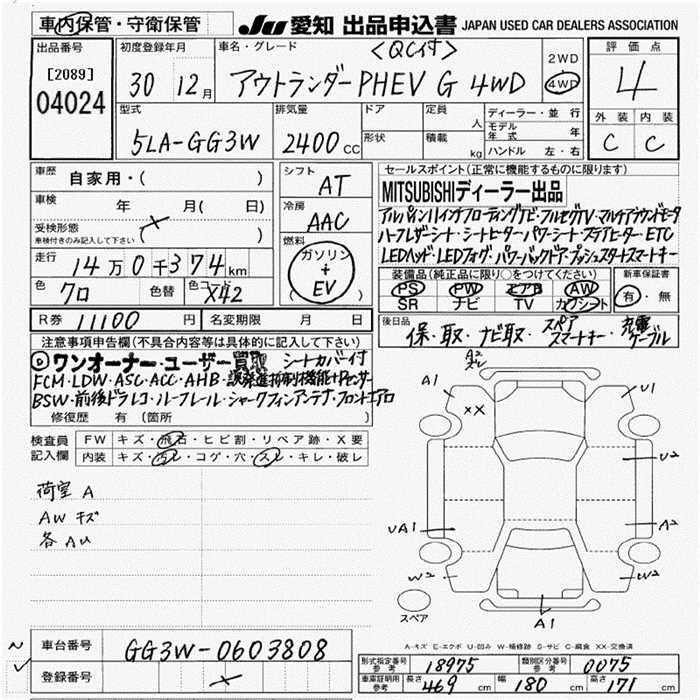 車内保管・守衛保管
JU 愛知 出品申込書 JAPAN USED CAR DEALERS ASSOCIATION
出品番号
[2089]
04024
初度登録年月
30年 12月
車名・グレード
<QC付>
アウトランダーPHEV G 4WD
2WD
4WD
評価点
4
外装 内装
C C
型式
5LA-GG3W
排気量
2400 CC
ドア
形状
定員 人
積載 kg
ディーラー・並行
モデル年式 年
ハンドル 左・右
車歴 自家用・( )
車検 年 月( 日)
受検形態
車検付きのみ記入して下さい
走行 14万0千374km
色 クロ 色替 色コード X42
シフト AT
冷房 AAC
燃料 ガソリン + EV
セールスポイント(正常に機能するものに限ります)
MITSUBISHIディーラー出品
アルパイン11インチフローティングナビ・フルセグTV・マルチアラウンドモニター
ハーフレザーシート・シートヒーター・パワーシート・ステアヒーター・ETC
LEDヘッド・LEDフォグ・パワーバックドア・プッシュスタートスマートキー
装備品(純正品に限り○をつけてください)
PS PW エアB AW
SR ナビ TV カワシート
新車保証書
有・無
R券 11100 円 名変期限 月 日
後日品 保・取・ナビ取・スペアスマートキー・充電ケーブル
注意事項申告欄(不具合内容等は具体的に記入して下さい)
ワンオーナー・ユーザー買取 シートカバー付
FCM・LDW・ASC・ACC・AHB・誤発進抑制機能・Pセンサー
BSW・前後ドラレコ・ルーフレール・シャークフィンアンテナ・フロントエアロ
修復歴 有 (箇所 )
検査員記入欄
FW キズ・飛石・ヒビ割・リペア跡・X要
内装 キズ・汚レ・コゲ・穴・スレ・キレ・破レ
荷室 A
AW キズ
各 AU
A2
スレ
A1
XX
U1
U2
UA1
A2
W2
U2
A1
スペア
A-キズ E-エクボ U-凹み W-補修跡 S-サビ C-腐食 XX-交換済
車台番号 GG3W-0603808
登録番号
型式指定番号 参考 18975 類別区分番号 参考 0075
車庫証明用 参考 長さ 469 cm 幅 180 cm 高さ 171 cm